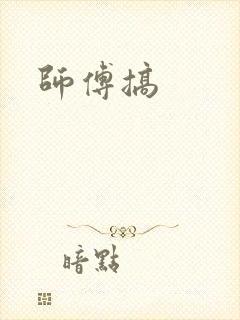 師傅搞
暗點